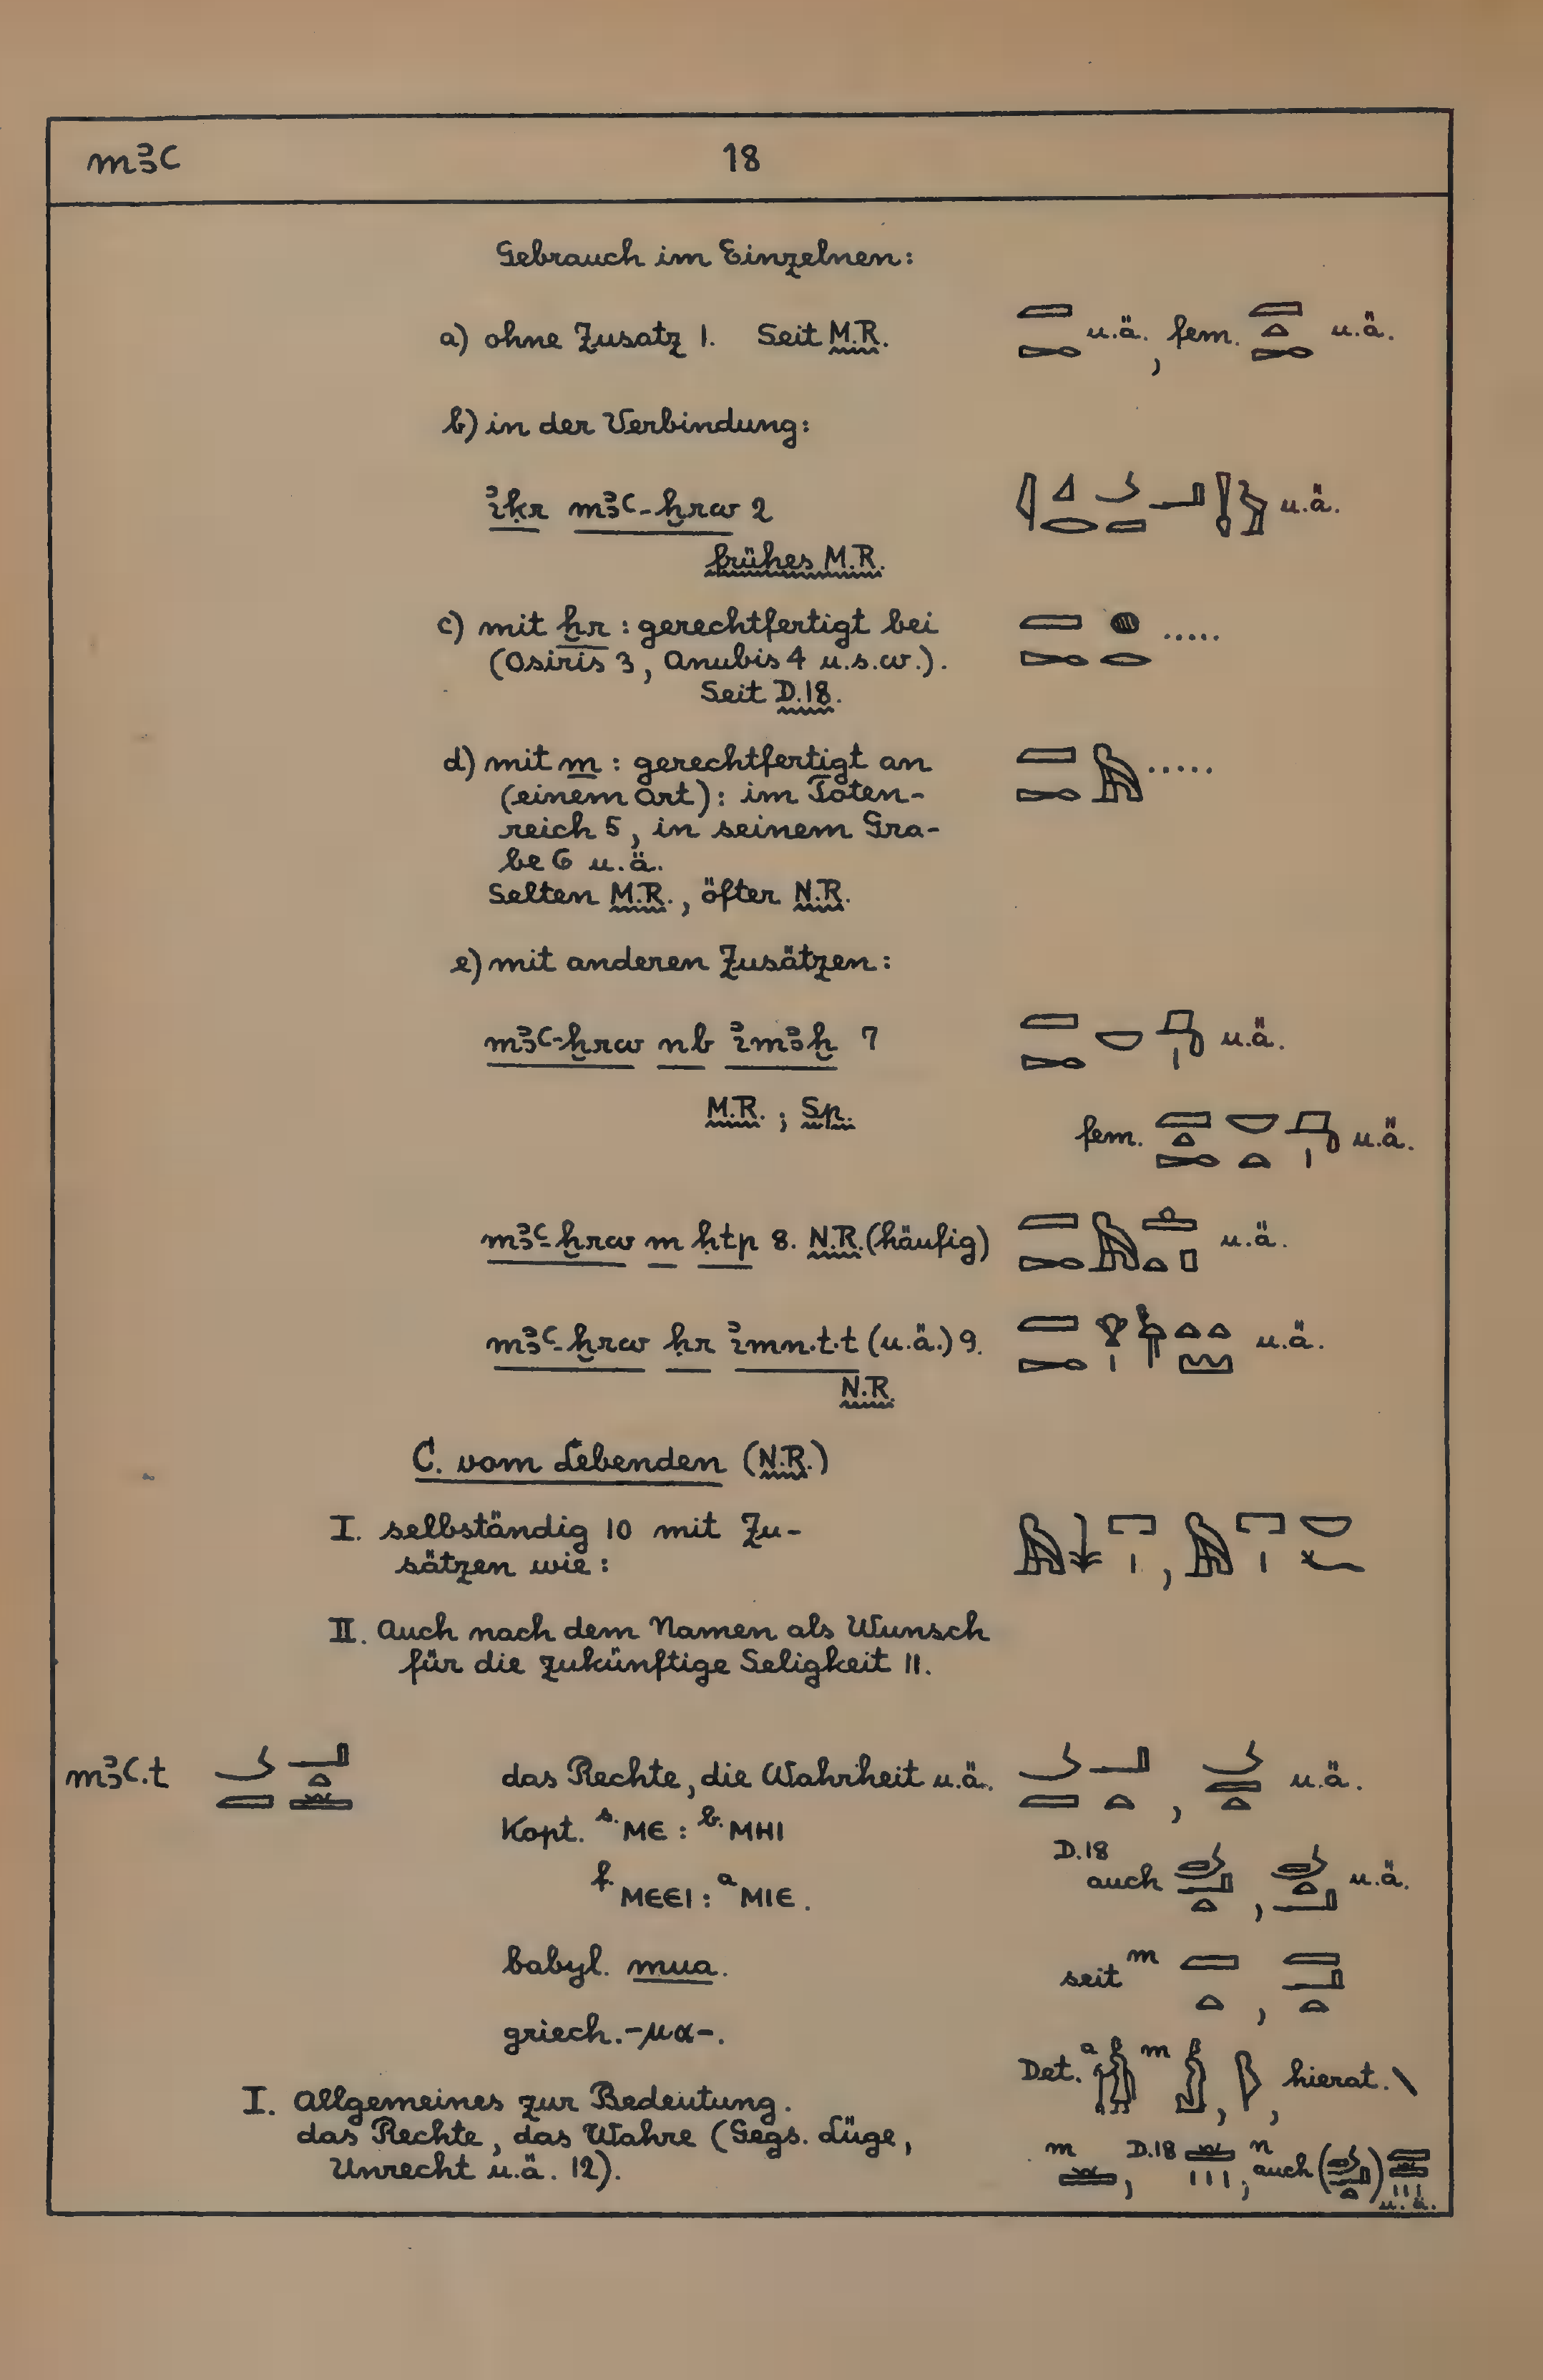 mꜣꜥ 18
Gebrauch im Einzelnen:
a) ohne Zusatz 1. Seit M.R. u.ä., fem. u.ä.
b) in der Verbindung:
ı͗ḳr mꜣꜥ-ḫrw 2 u.ä.
frühes M.R.
c) mit ḫr : gerechtfertigt bei .....
(Osiris 3, Anubis 4 u.s.w.).
Seit D.18.
d) mit m : gerechtfertigt an .....
(einem Ort): im Toten-
reich 5, in seinem Gra-
be 6 u.ä.
Selten M.R., öfter N.R.
e) mit anderen Zusätzen:
mꜣꜥ-ḫrw nb ı͗mꜣḫ 7 u.ä.
M.R. ; Sp.
fem. u.ä.
mꜣꜥ-ḫrw m ḥtp 8. N.R. (häufig) u.ä.
mꜣꜥ-ḫrw ḥr ı͗mn.t.t (u.ä.) 9. u.ä.
N.R.
C. vom Lebenden (N.R.)
I. selbständig 10 mit Zu-
sätzen wie:
II. Auch nach dem Namen als Wunsch
für die zukünftige Seligkeit 11.
mꜣꜥ.t das Rechte, die Wahrheit u.ä. , u.ä.
Kopt. s. ⲘⲈ : b. ⲘⲎⲒ
D.18
auch , u.ä.
f. ⲘⲈⲈⲒ : a ⲘⲒⲈ.
babyl. mua.
seit m ,
griech. -μα-.
Det. a m , , hierat. \
I. Allgemeines zur Bedeutung.
das Rechte, das Wahre (Gegs. Lüge,
Unrecht u.ä. 12).
m , D.18 , n auch ( )
u.ä.